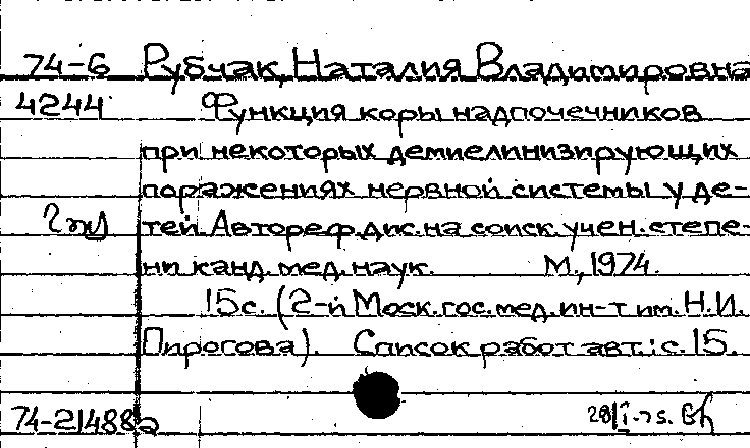 74-6 Рубчак, Наталия Владимировна
4244 Функция коры надпочечников
при некоторых демиелинизирующих
поражениях нервной системы у де-
тей. Автореф. дис. на соиск. учен. степе-
ни канд. мед. наук. М., 1974.
15 с. (2-й Моск. гос. мед. ин-т им. Н.И.
Пирогова). Список работ авт.: с. 15.
74-21488
28/I-75.